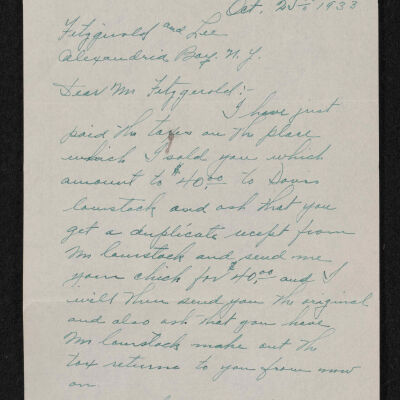 Oct. 25th 1933
Fitzgerald and Lee
Alexandria Bay, N.Y.
Dear Mr Fitzgerald:-
I have just
paid the taxes on the place
which I sold you which
amount to $40.00 to Davis
Comstock and ask that you
get a duplicate recept from
Mr Comstock and send me
your check for $40.00 and I
will then send you the original
and also ask that you have
Mr Comstock make out the
tax returns to you from now
on